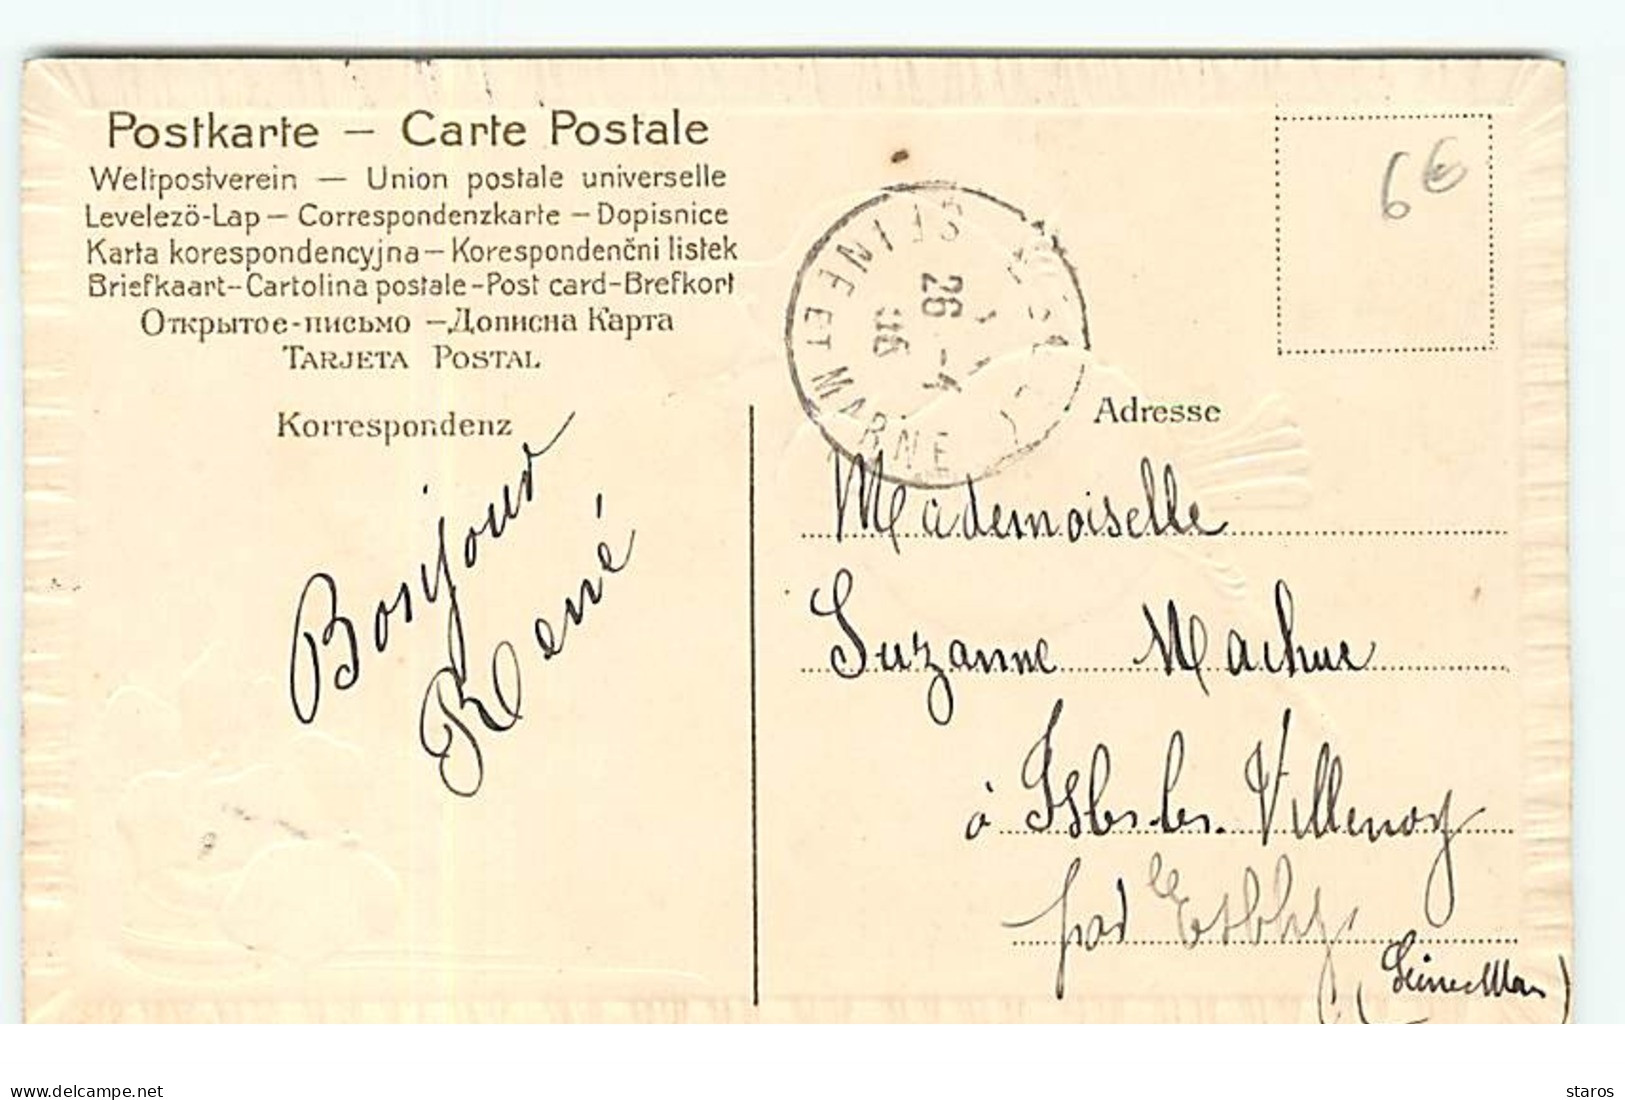 Postkarte – Carte Postale
Weltpostverein – Union postale universelle
Levelezö-Lap – Correspondenzkarte – Dopisnice
Karta korespondencyjna – Korespondenčni listek
Briefkaart – Cartolina postale – Post card – Brefkort
Открытое-письмо – Дописна Карта
TARJETA POSTAL
6€
SEINE ET MARNE
26 - 4
06
Korrespondenz
Adresse
Bonjour
René
Mademoiselle
Suzanne Machue
à Isles-les-Villenoy
par Esbly
(Seine Mar)
delcampe.net
staros